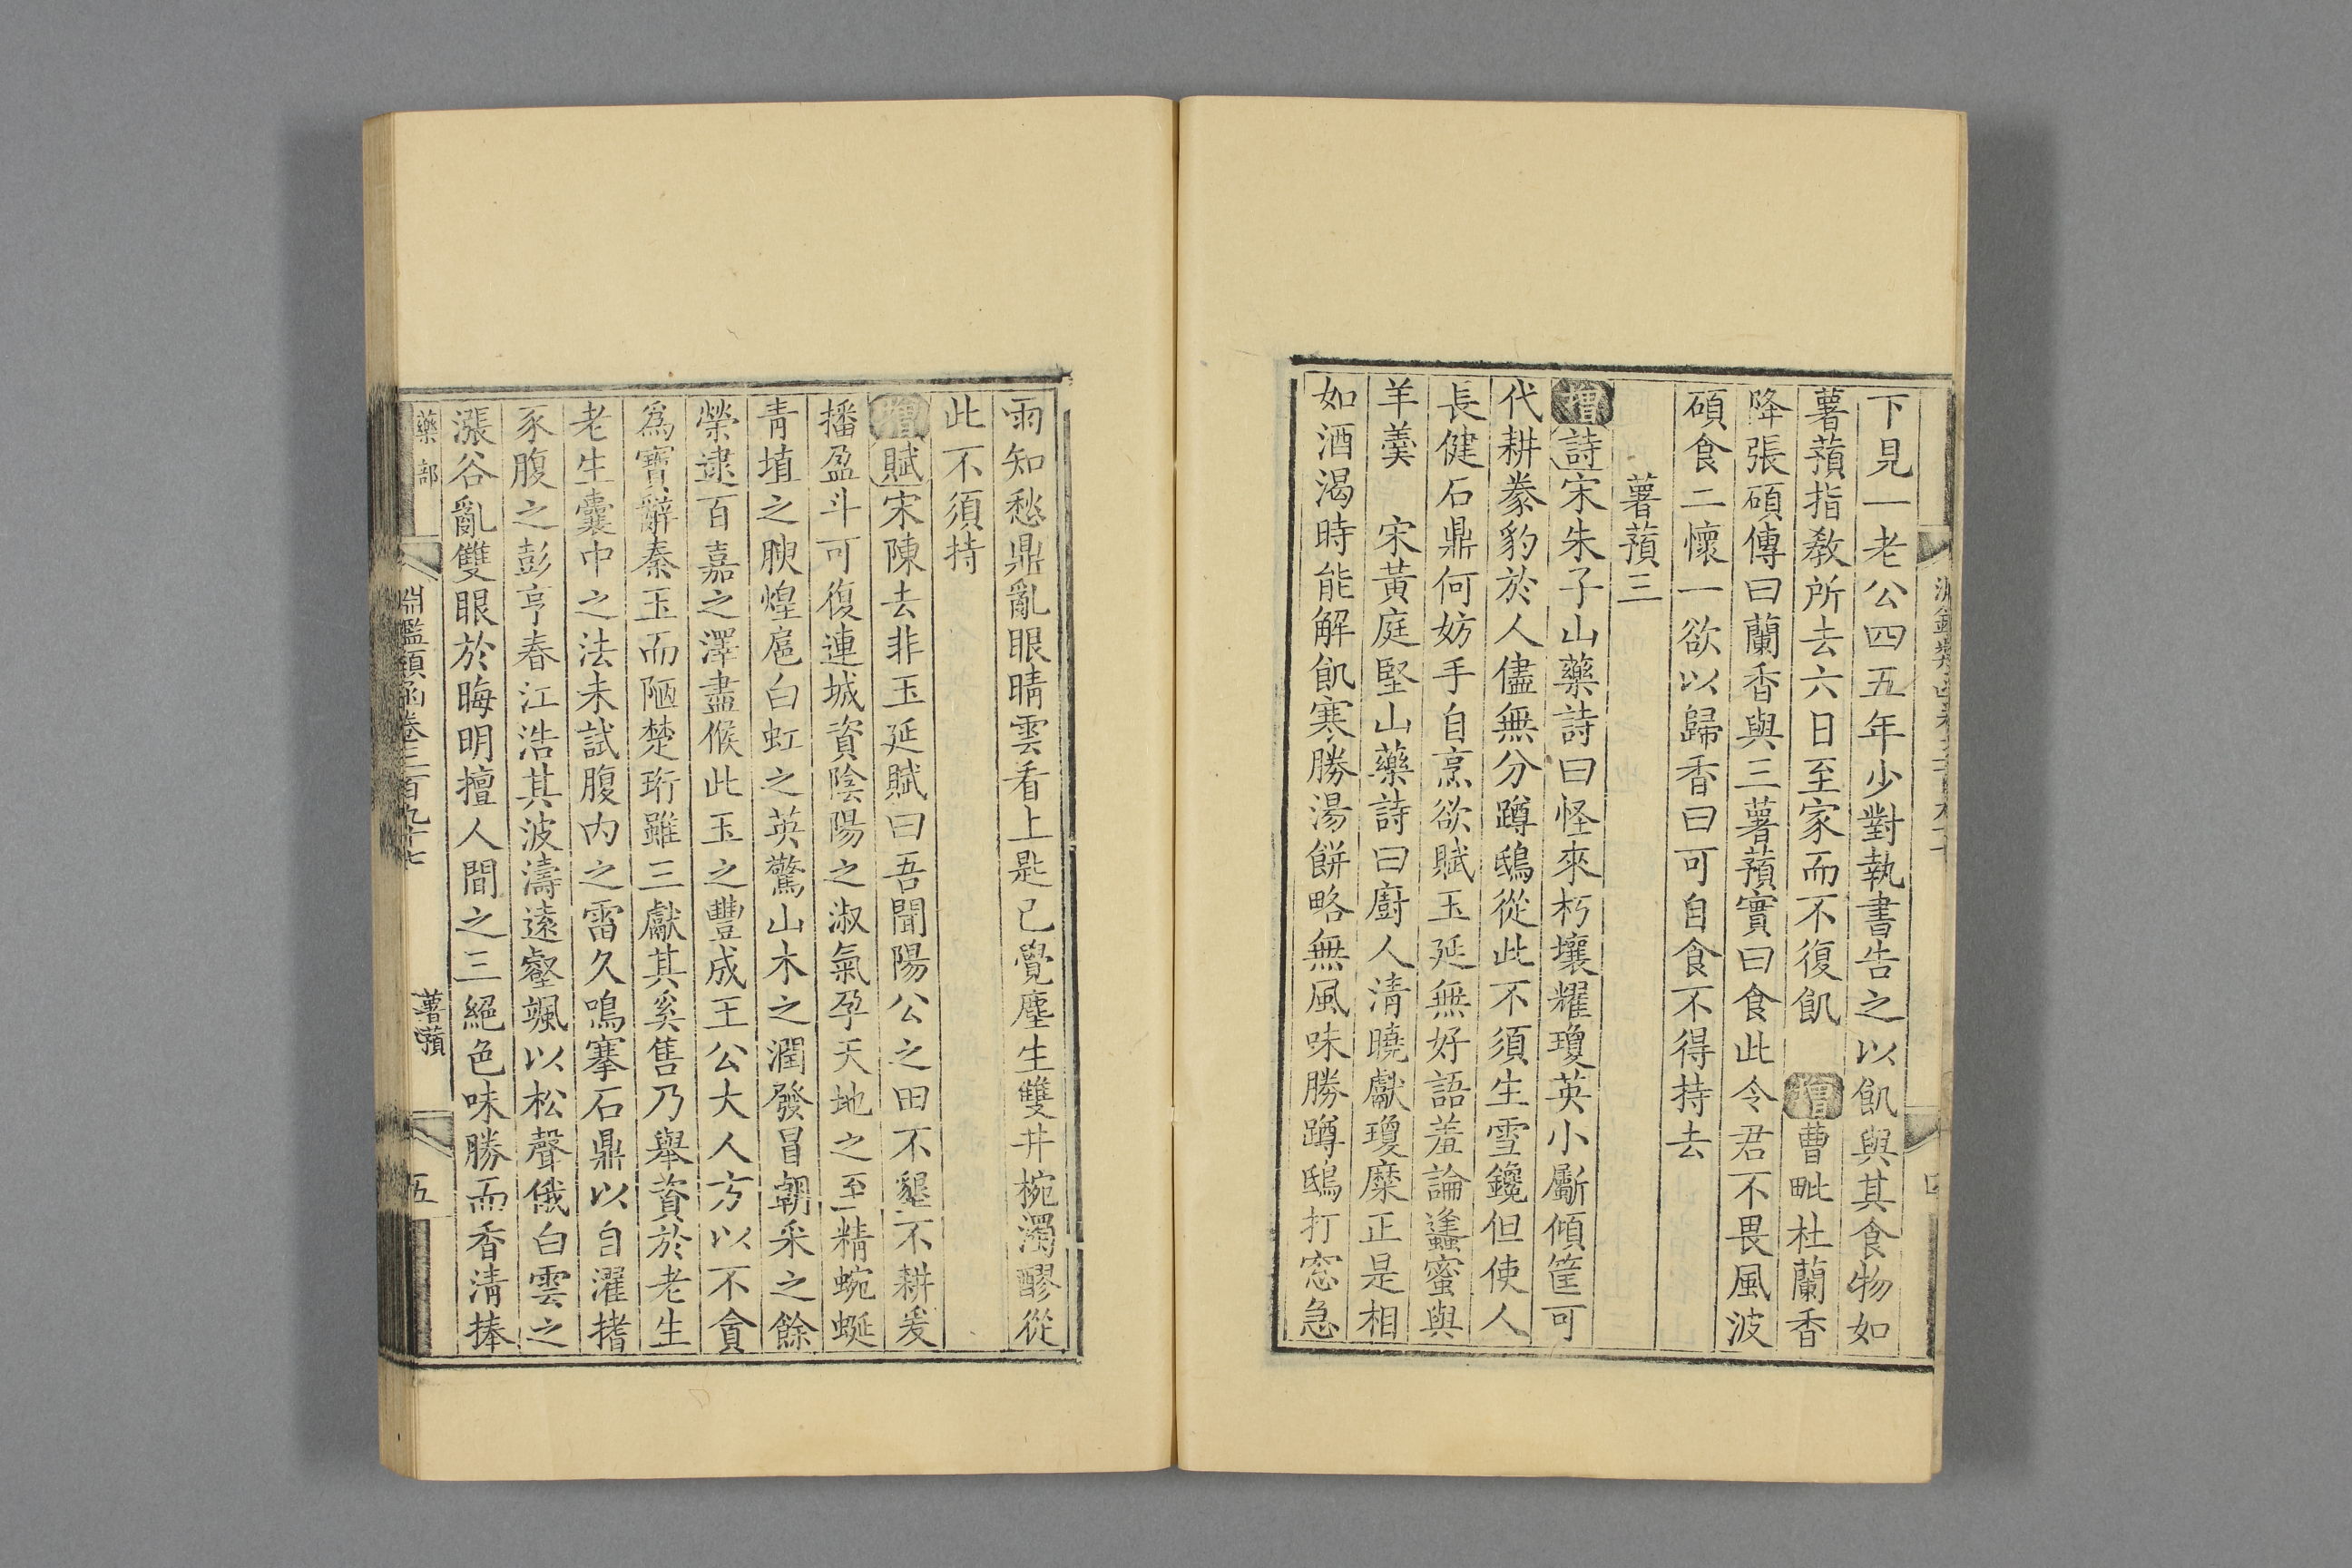 下見一老公四五年少對執書告之以飢與其食物如
薯蕷指教所去六日至家而不復飢 增曹毗杜蘭香
降張碩傳曰蘭香與三薯蕷實曰食此令君不畏風波
碩食二懷一欲以歸香曰可自食不得持去
薯蕷三
增詩宋朱子山藥詩曰怪來朽壤耀瓊英小斸傾筐可
代耕豢豹於人儘無分蹲鴟從此不須生雪鑱但使人
長健石鼎何妨手自烹欲賦玉延無好語羞論蠭蜜與
羊羹 宋黃庭堅山藥詩曰廚人清曉獻瓊糜正是相
如酒渴時能解飢寒勝湯餅略無風味勝蹲鴟打窓急
雨知愁鼎亂眼晴雲看上匙已覺塵生雙井椀濁醪從
此不須持
增賦宋陳去非玉延賦曰吾聞陽公之田不墾不耕爰
播盈斗可復連城資陰陽之淑氣孕天地之至精蜿蜒
青埴之腴煌扈白虹之英驚山木之潤發冒朝采之餘
榮逮百嘉之澤盡候此玉之豐成王公大人方以不貪
爲寶辭秦玉而陋楚珩雖三獻其奚售乃舉資於老生
老生囊中之法未試腹内之雷久鳴搴石鼎以自濯揩
豕腹之彭亨春江浩其波濤遠壑颯以松聲俄白雲之
漲谷亂雙眼於晦明擅人間之三絕色味勝而香清捧
藥部
淵鑑類函卷三百九十七
薯蕷
五